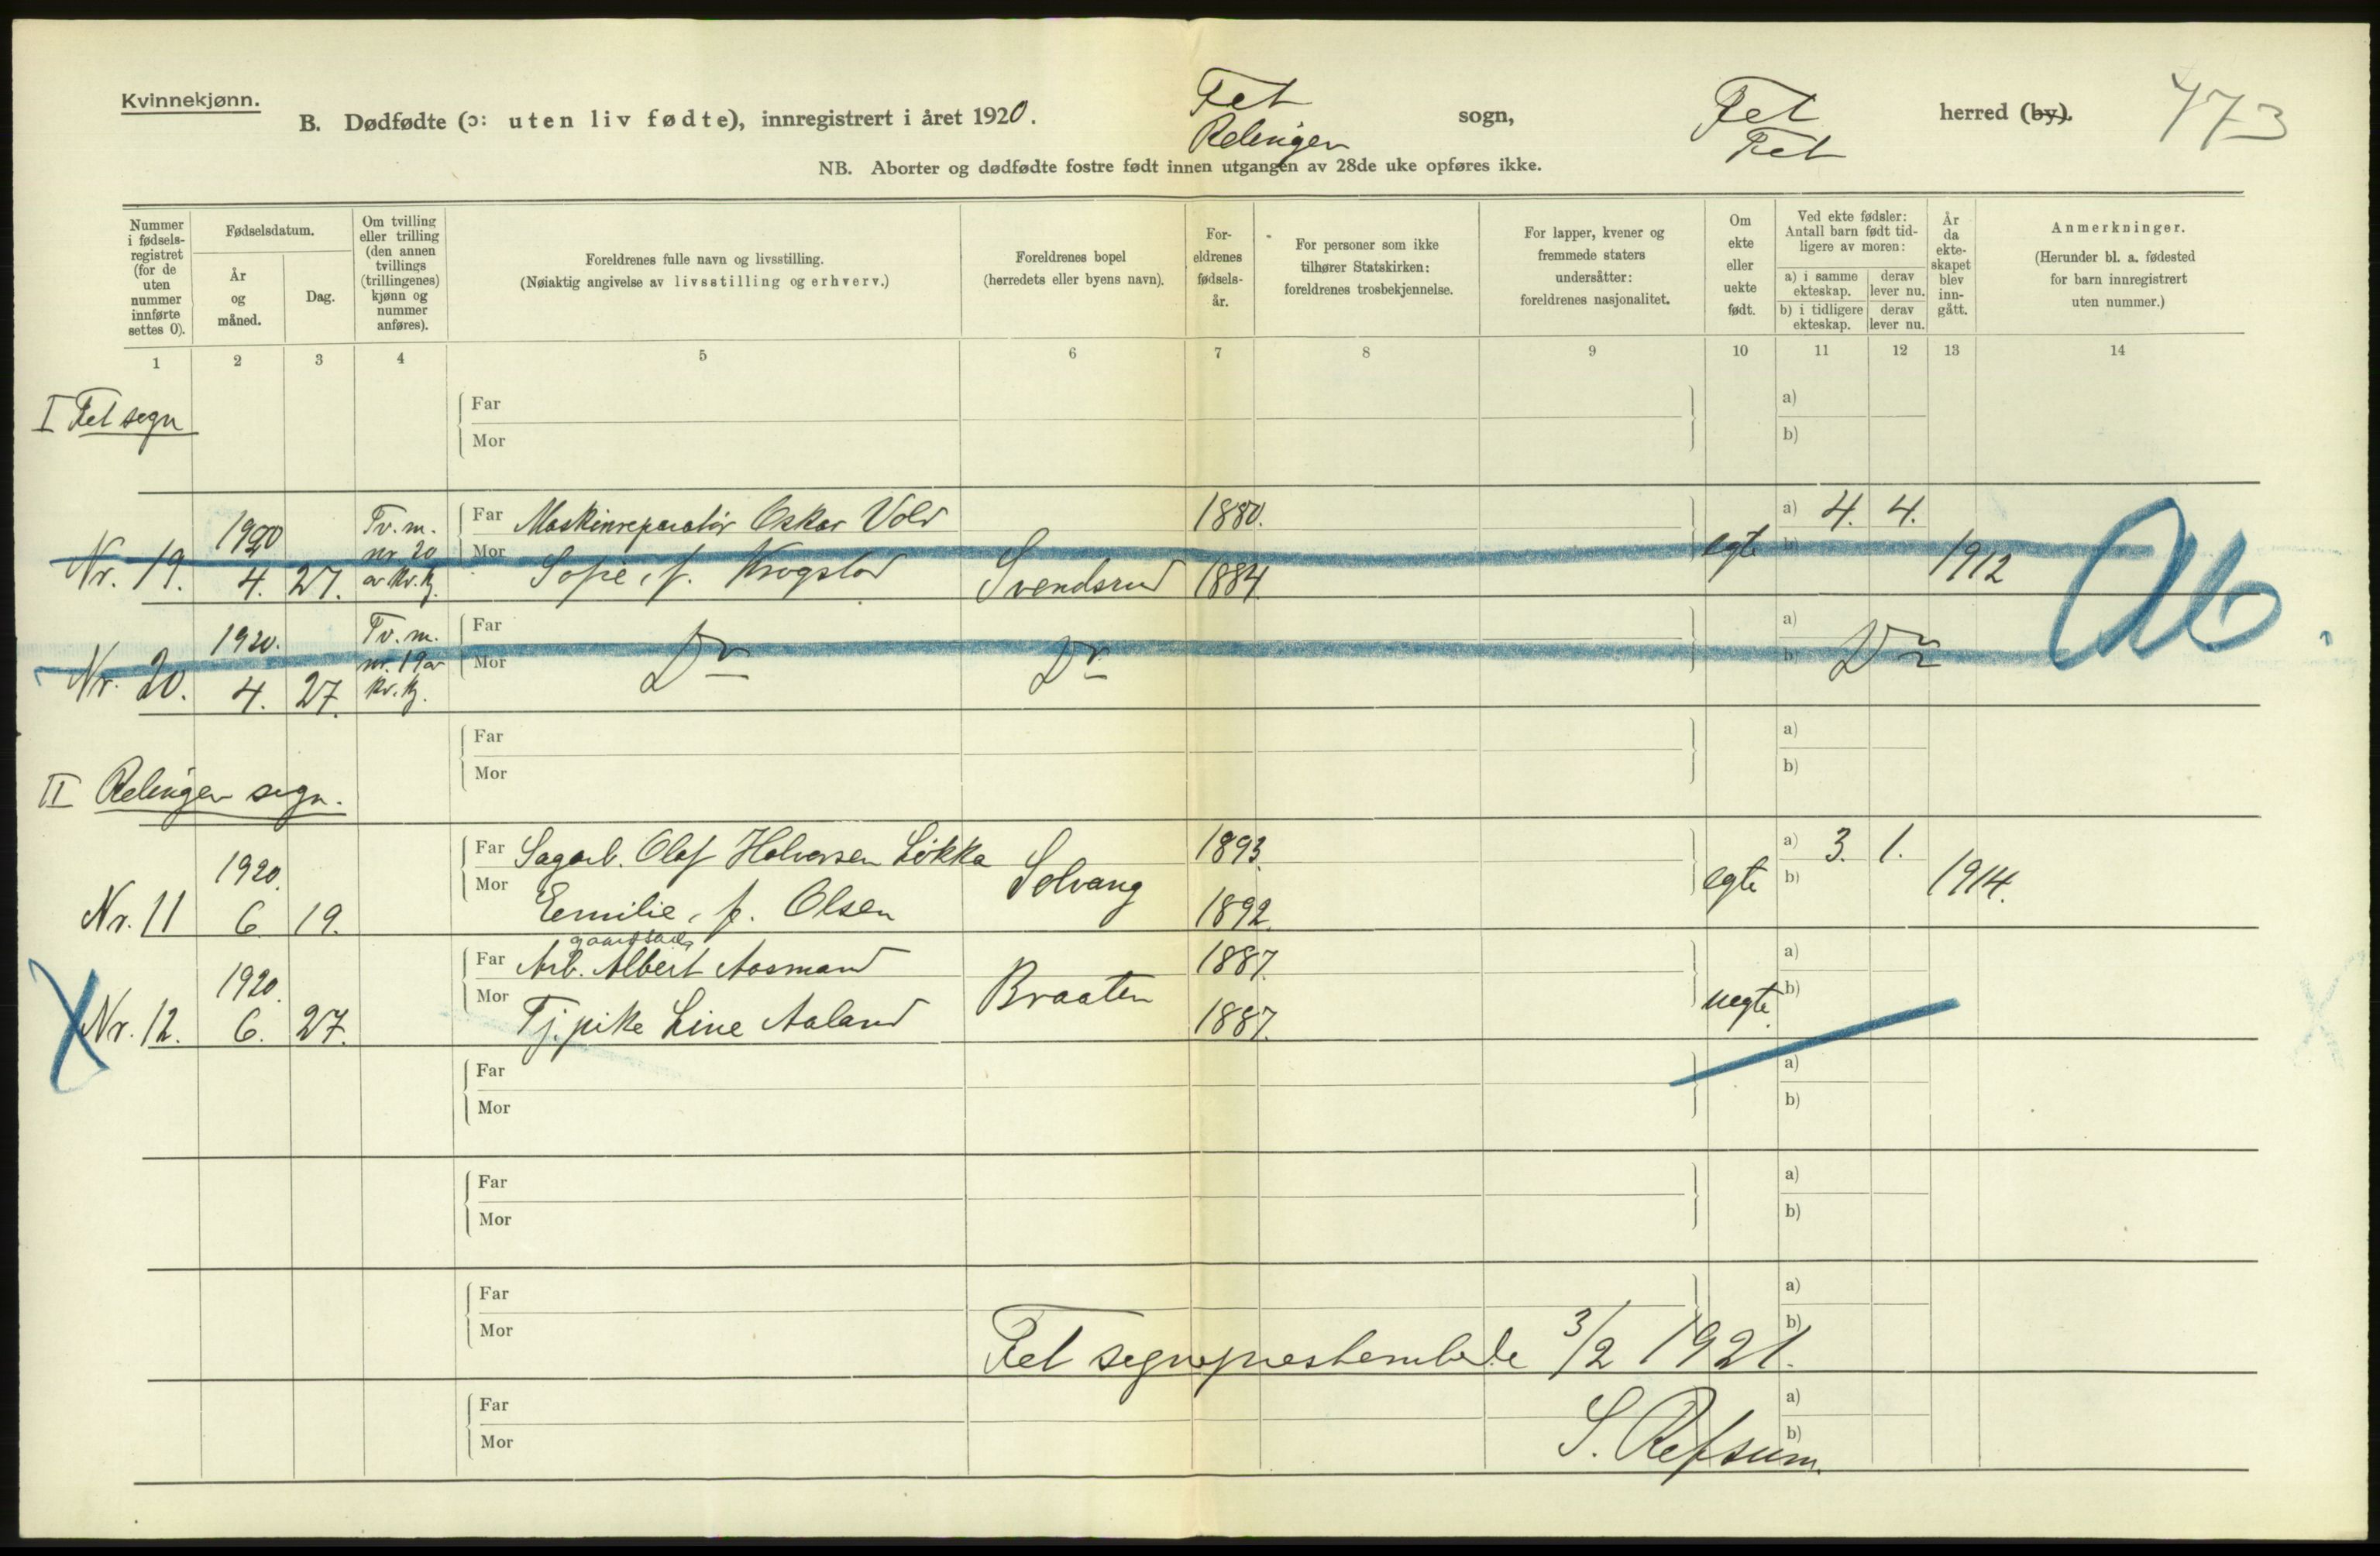 Kvinnekjønn.
B. Dødfødte (ɔ: uten liv fødte), innregistrert i året 1920.
Fet
Relingen
sogn,
Fet
Fet
herred (by).
473
NB. Aborter og dødfødte fostre født innen utgangen av 28de uke opføres ikke.
Nummer i fødsels-registret (for de uten nummer innførte settes 0).
Fødselsdatum.
År og måned.
Dag.
Om tvilling eller trilling (den annen tvillings (trillingenes) kjønn og nummer anføres).
Foreldrenes fulle navn og livsstilling.
(Nøiaktig angivelse av livsstilling og erhverv.)
Foreldrenes bopel
(herredets eller byens navn).
For-eldrenes fødsels-år.
For personer som ikke tilhører Statskirken: foreldrenes trosbekjennelse.
For lapper, kvener og fremmede staters undersåtter: foreldrenes nasjonalitet.
Om ekte eller uekte født.
Ved ekte fødsler: Antall barn født tid-ligere av moren:
a) i samme ekteskap.
derav lever nu.
b) i tidligere ekteskap.
derav lever nu.
År da ekte-skapet blev inn-gått.
Anmerkninger.
(Herunder bl. a. fødested for barn innregistrert uten nummer.)
1 2 3 4 5 6 7 8 9 10 11 12 13 14
I Fet sogn
Far
Mor
a)
b)
Nr. 19. 1920 4. 27. Tv. m. nr 20 av kv. kj.
Far Maskinreparatör Oskar Vold 1880.
Mor Sofie, f. Krogstad Svendsrud 1884
egte a) 4. 4.
b)
1912
Ab.
Nr. 20. 1920. 4. 27. Tv. m. nr. 19 av kv. kj.
Far
Mor
Do Do
a)
b)
Do
Far
Mor
a)
b)
II Relingen sogn.
Nr. 11 1920. 6 19.
Far Sagarb. Olaf Halvorsen Løkka 1893.
Mor Emilie, f. Olsen Solvang 1892.
egte a) 3. 1.
b)
1914.
X Nr. 12. 1920. 6. 27.
Far Arb. Albert Aasmand 1887.
Mor Tj.pike Line Aaland Braaten 1887.
uegte.
a)
b)
Far
Mor
a)
b)
Far
Mor
a)
b)
Far
Mor
a)
b)
Fet sogneprestembede 3/2 1921.
Far
Mor
a)
b)
S. Refsum.